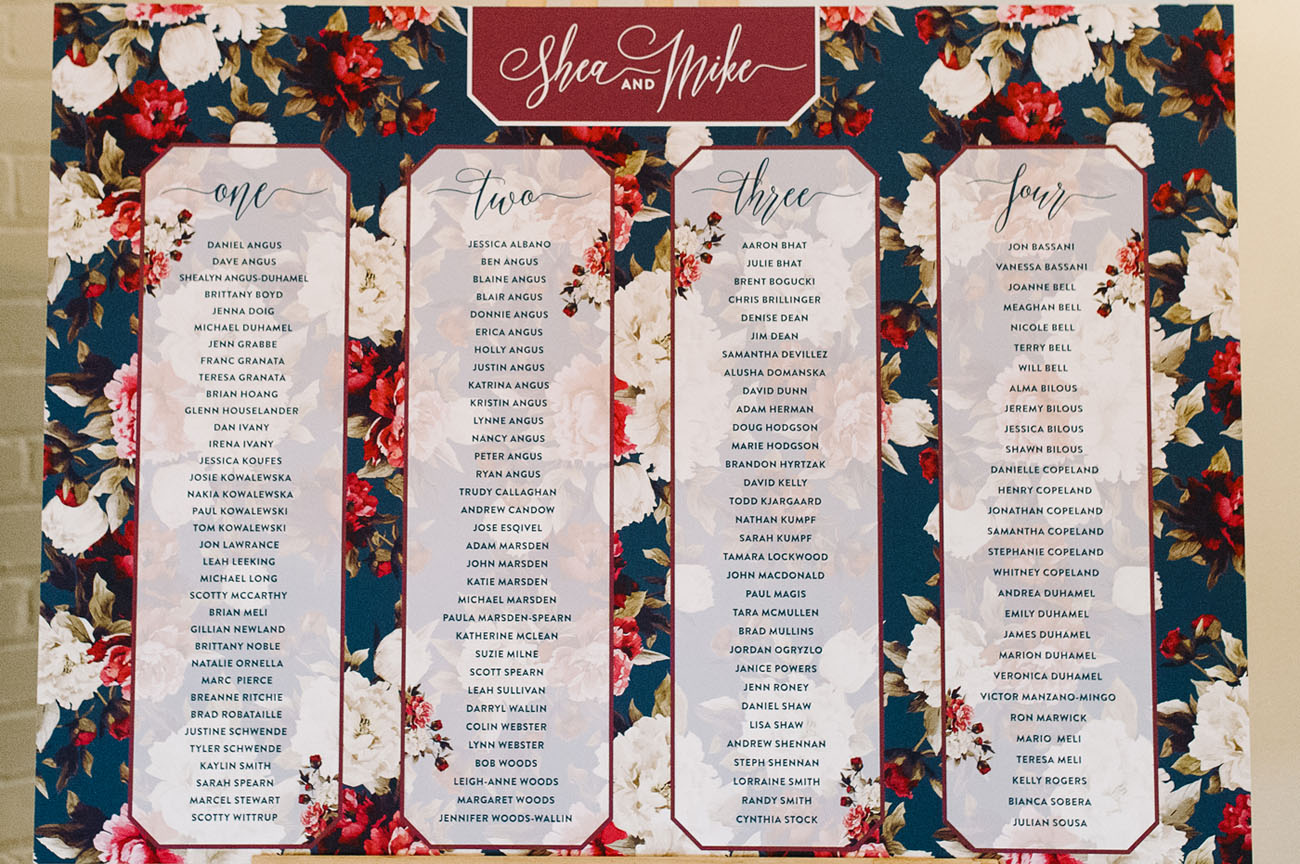 Shea AND Mike
one
DANIEL ANGUS
DAVE ANGUS
SHEALYN ANGUS-DUHAMEL
BRITTANY BOYD
JENNA DOIG
MICHAEL DUHAMEL
JENN GRABBE
FRANC GRANATA
TERESA GRANATA
BRIAN HOANG
GLENN HOUSELANDER
DAN IVANY
IRENA IVANY
JESSICA KOUFES
JOSIE KOWALEWSKA
NAKIA KOWALEWSKA
PAUL KOWALEWSKI
TOM KOWALEWSKI
JON LAWRANCE
LEAH LEEKING
MICHAEL LONG
SCOTTY MCCARTHY
BRIAN MELI
GILLIAN NEWLAND
BRITTANY NOBLE
NATALIE ORNELLA
MARC PIERCE
BREANNE RITCHIE
BRAD ROBATAILLE
JUSTINE SCHWENDE
TYLER SCHWENDE
KAYLIN SMITH
SARAH SPEARN
MARCEL STEWART
SCOTTY WITTRUP
two
JESSICA ALBANO
BEN ANGUS
BLAINE ANGUS
BLAIR ANGUS
DONNIE ANGUS
ERICA ANGUS
HOLLY ANGUS
JUSTIN ANGUS
KATRINA ANGUS
KRISTIN ANGUS
LYNNE ANGUS
NANCY ANGUS
PETER ANGUS
RYAN ANGUS
TRUDY CALLAGHAN
ANDREW CANDOW
JOSE ESQIVEL
ADAM MARSDEN
JOHN MARSDEN
KATIE MARSDEN
MICHAEL MARSDEN
PAULA MARSDEN-SPEARN
KATHERINE MCLEAN
SUZIE MILNE
SCOTT SPEARN
LEAH SULLIVAN
DARRYL WALLIN
COLIN WEBSTER
LYNN WEBSTER
BOB WOODS
LEIGH-ANNE WOODS
MARGARET WOODS
JENNIFER WOODS-WALLIN
three
AARON BHAT
JULIE BHAT
BRENT BOGUCKI
CHRIS BRILLINGER
DENISE DEAN
JIM DEAN
SAMANTHA DEVILLEZ
ALUSHA DOMANSKA
DAVID DUNN
ADAM HERMAN
DOUG HODGSON
MARIE HODGSON
BRANDON HYRTZAK
DAVID KELLY
TODD KJARGAARD
NATHAN KUMPF
SARAH KUMPF
TAMARA LOCKWOOD
JOHN MACDONALD
PAUL MAGIS
TARA MCMULLEN
BRAD MULLINS
JORDAN OGRYZLO
JANICE POWERS
JENN RONEY
DANIEL SHAW
LISA SHAW
ANDREW SHENNAN
STEPH SHENNAN
LORRAINE SMITH
RANDY SMITH
CYNTHIA STOCK
four
JON BASSANI
VANESSA BASSANI
JOANNE BELL
MEAGHAN BELL
NICOLE BELL
TERRY BELL
WILL BELL
ALMA BILOUS
JEREMY BILOUS
JESSICA BILOUS
SHAWN BILOUS
DANIELLE COPELAND
HENRY COPELAND
JONATHAN COPELAND
SAMANTHA COPELAND
STEPHANIE COPELAND
WHITNEY COPELAND
ANDREA DUHAMEL
EMILY DUHAMEL
JAMES DUHAMEL
MARION DUHAMEL
VERONICA DUHAMEL
VICTOR MANZANO-MINGO
RON MARWICK
MARIO MELI
TERESA MELI
KELLY ROGERS
BIANCA SOBERA
JULIAN SOUSA